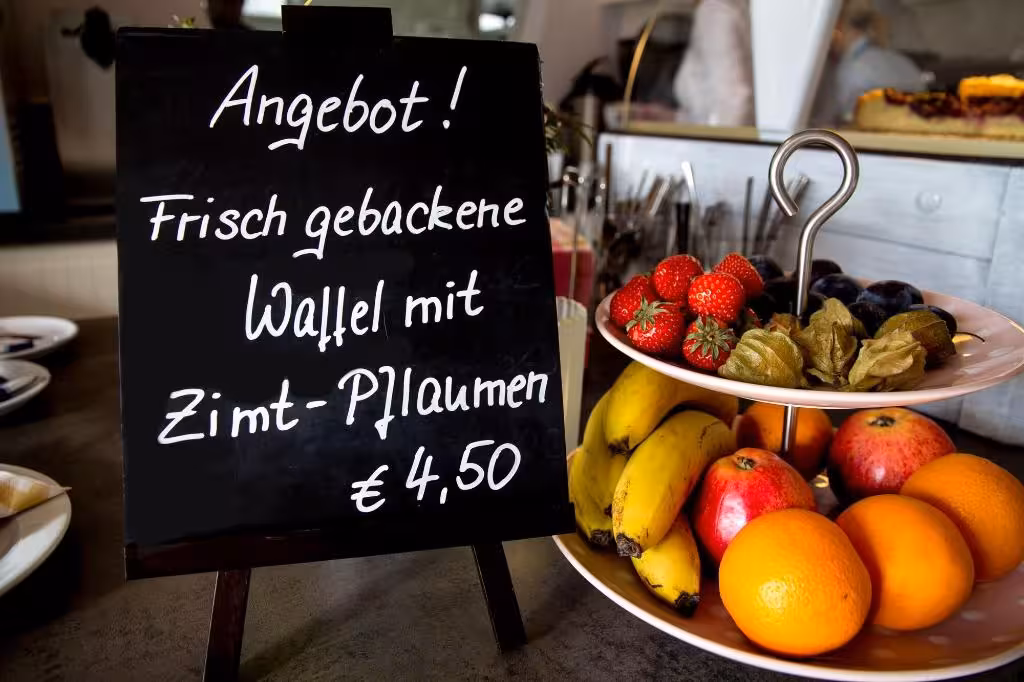 Angebot!
Frisch gebackene
Waffel mit
Zimt-Pflaumen
€ 4,50